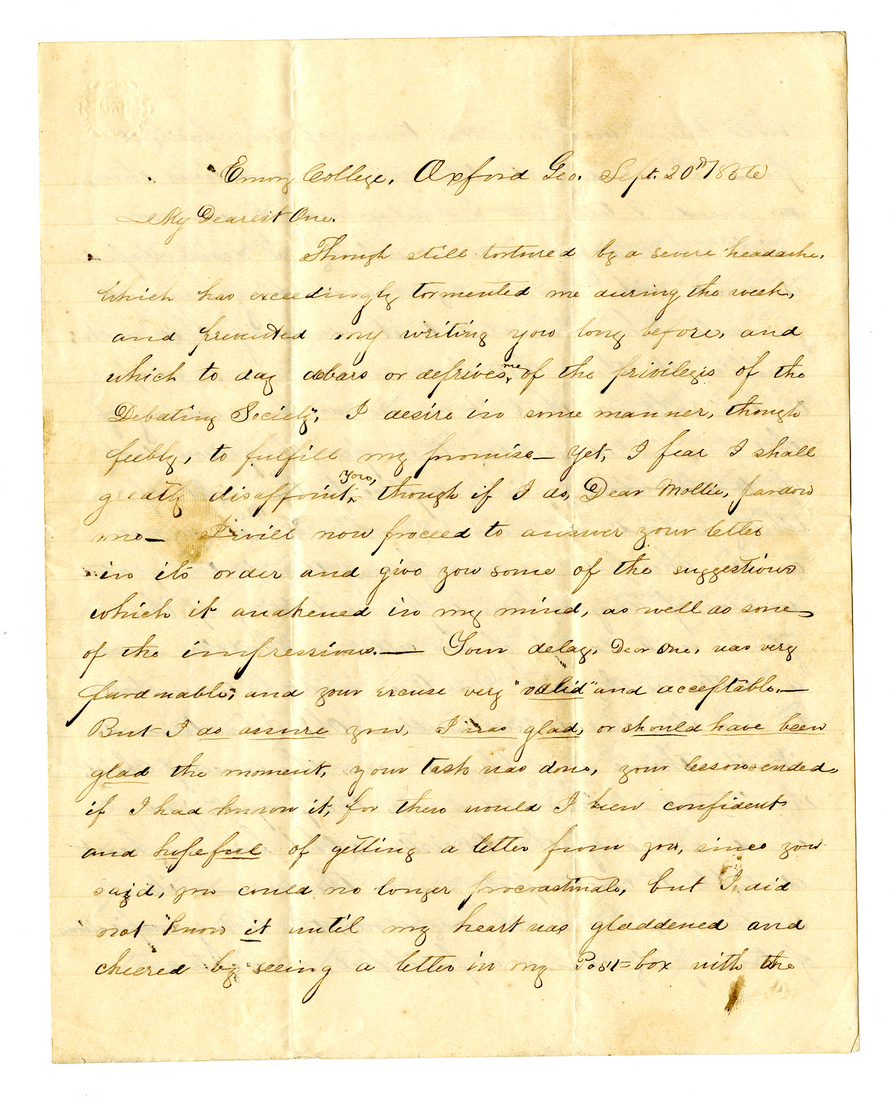 Emory College, Oxford Geo. Sept. 20th 1856
My Dearest One.
Though still tortured by a severe headache,
which has exceedingly tormented me during the week,
and prevented my writing you long before, and
which to day debars or deprives me of the privileges of the
Debating Society, I desire in some manner, though
feebly, to fulfill my promise— yet, I fear I shall
greatly disappoint you, though if I do, Dear Mollie, pardon
me— I will now proceed to answer your letter
in its order and give you some of the suggestions
which it awakened in my mind, as well as some
of the impressions.— Your delay, Dear One, was very
pardonable; and your excuse very "valid" and acceptable.—
But I do assure you, I was glad, or should have been
glad the moment, your task was done, your lessons ended,
if I had known it, for then would I been confident
and hopeful of getting a letter from you, since you
said, you could no longer procrastinate, but I did
not know it until my heart was gladdened and
cheered by seeing a letter in my Post=box with the